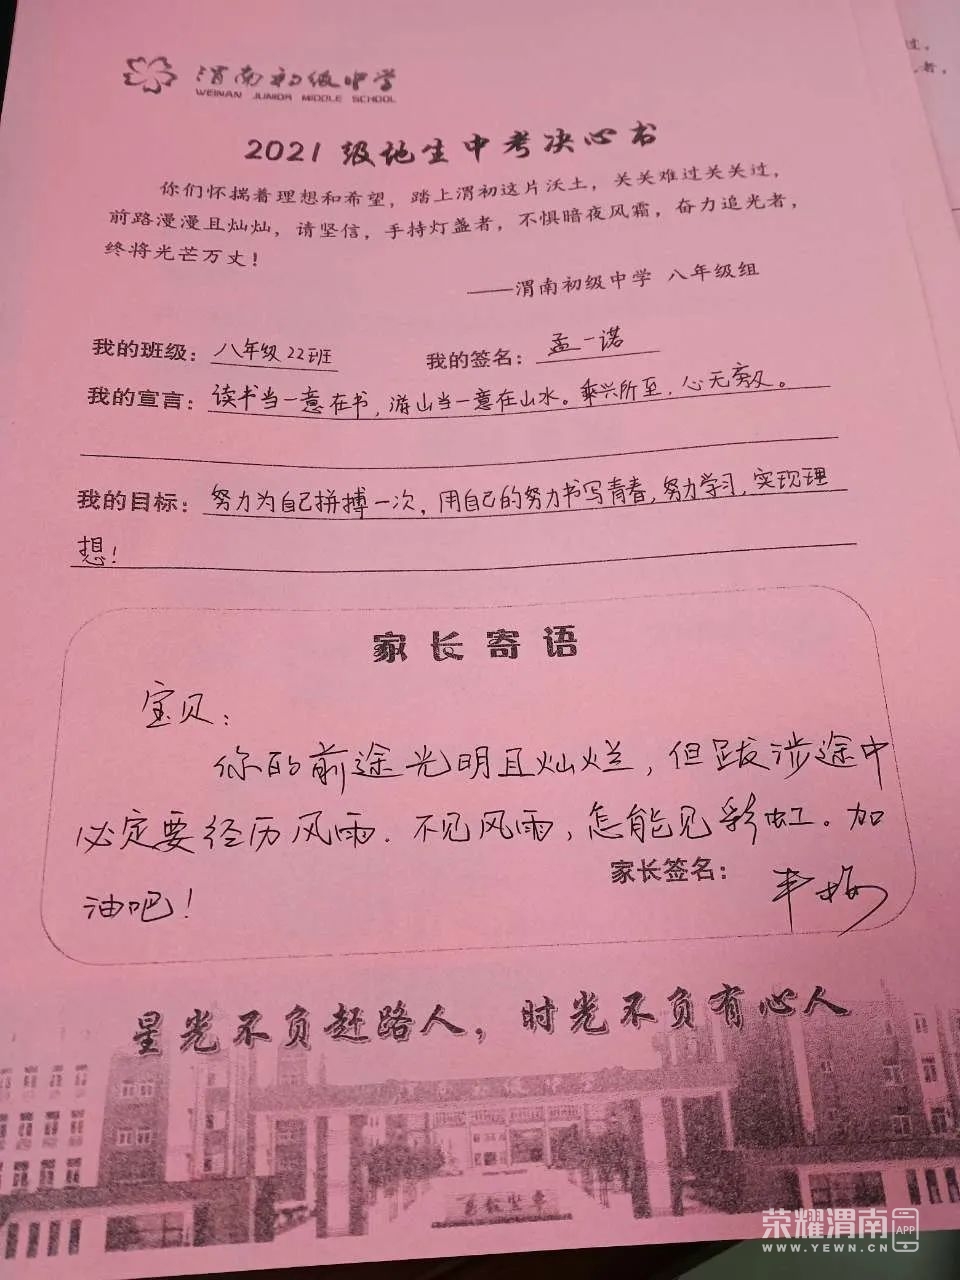 渭南初级中学
WEINAN JUNIOR MIDDLE SCHOOL
2021级地生中考决心书
你们怀揣着理想和希望，踏上渭初这片沃土，关关难过关关过，
前路漫漫且灿灿，请坚信，手持灯盏者，不惧暗夜风霜，奋力追光者，
终将光芒万丈！
——渭南初级中学 八年级组
我的班级：八年级22班 我的签名：孟一诺
我的宣言：读书当一意在书，游山当一意在山水。乘兴所至，心无旁及。
我的目标：努力为自己拼搏一次，用自己的努力书写青春，努力学习，实现理
想！
家长寄语
宝贝：
你的前途光明且灿烂，但跋涉途中
必定要经历风雨．不见风雨，怎能见彩虹。加
油吧！
家长签名：
星光不负赶路人，时光不负有心人
渭南初级中学
荣耀渭南 APP
WWW.YEWN.CN